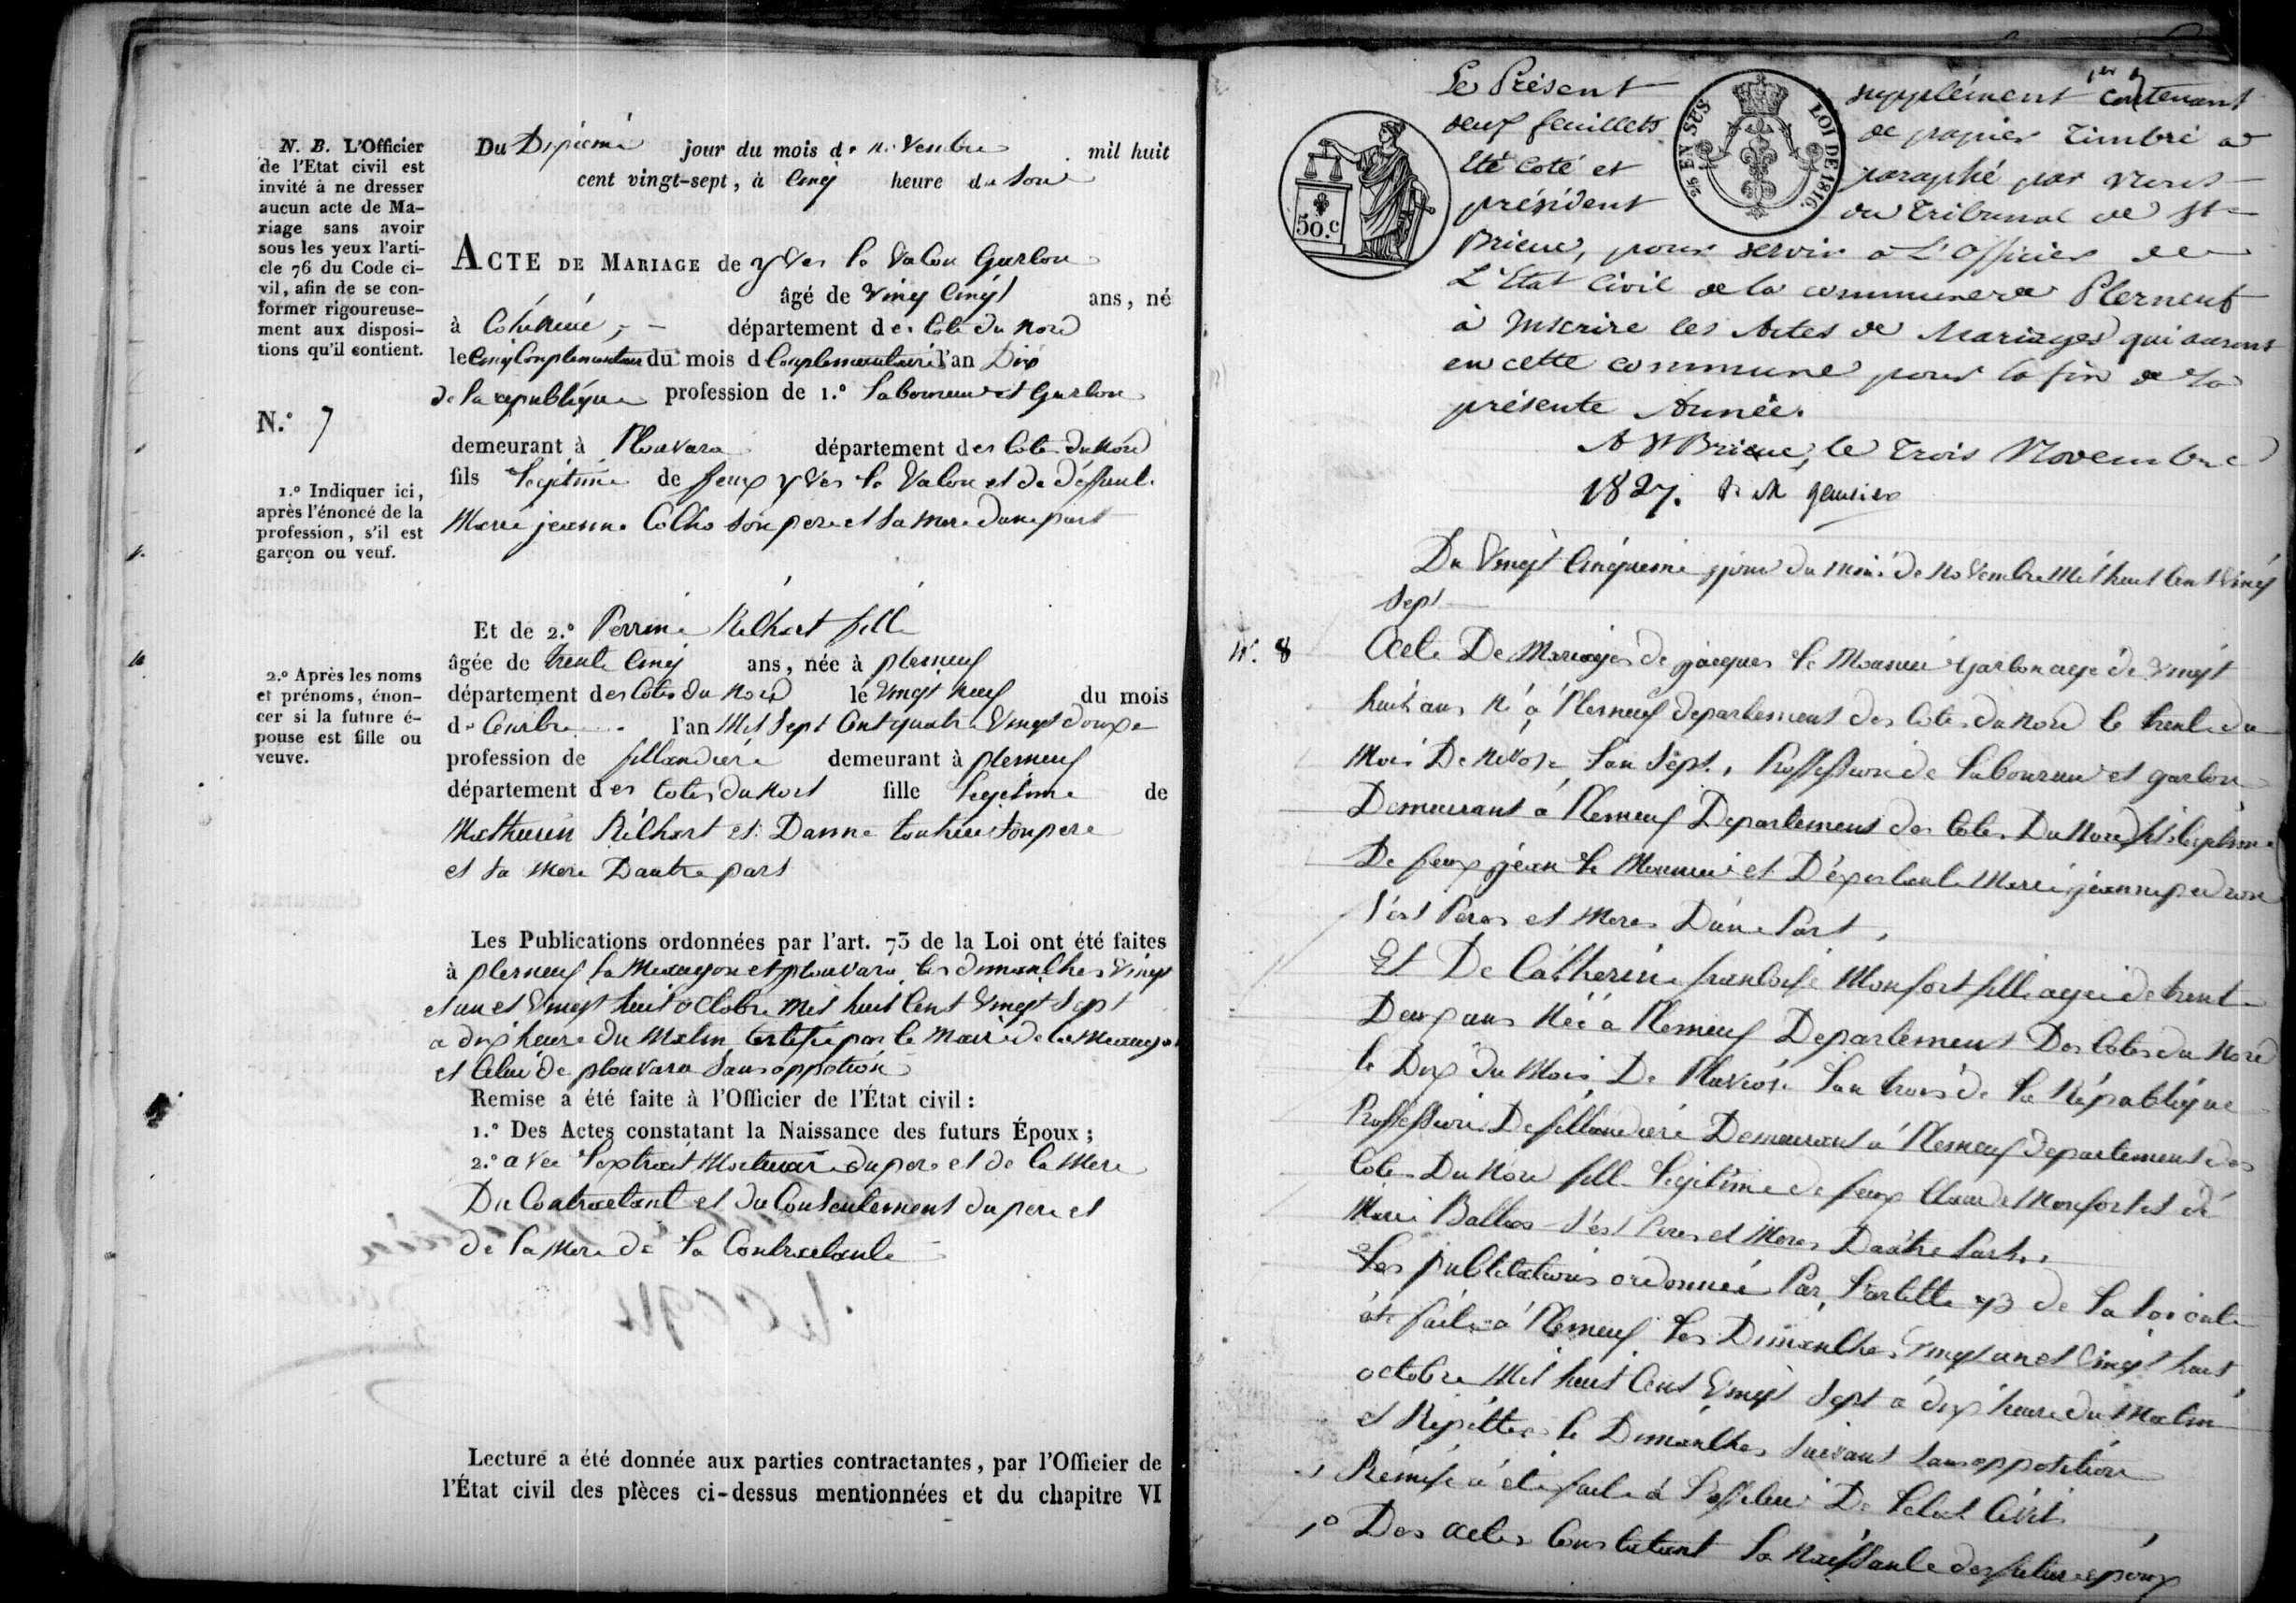 N. B. L'Officier
de l'Etat civil est
invité à ne dresser
aucun acte de Ma-
riage sans avoir
sous les yeux l'arti-
cle 76 du Code ci-
vil, afin de se con-
former rigoureuse-
ment aux disposi-
tions qu'il contient.
N.º 7
1.º Indiquer ici,
après l'énoncé de la
profession, s'il est
garçon ou veuf.
2.º Après les noms
et prénoms, énon-
cer si la future é-
pouse est fille ou
veuve.
Du Dixiemé jour du mois de novembre mil huit
cent vingt-sept, à Cinq heure du Soir
ACTE DE MARIAGE de yves le Valou Garson
âgé de Vingt Cinqt ans, né
à département des Cote du Nord
le Cinq Complementaire du mois d Complementaire l'an Dix
de la republique profession de 1.º laboureur et Garson
demeurant à Plouvara département des Cotes du Nord
fils legitime de feux yves le Valou et de deffunte
Marie jeanne Colho son pere et sa mere dune part
Et de 2.º Perrine Relhart fille
âgée de trente Cinq ans, née à plerneuf
département des Cotes du Nord le vingt neuf du mois
d l'an Mil Sept Cent quatre Vingt douze
profession de fillandiere demeurant à plerneuf
département des Cotes du Nort fille legitime de
Mathurin Relhart et Danne son pere
et sa mere Dautre part
Les Publications ordonnées par l'art. 73 de la Loi ont été faites
à plerneuf la Meaugon et plouvara les dimanches Vingt
et un et Vingt huit octobre mil huit Cent Vingt Sept
a dix heure du Matin certifié par le Maire de la Meaugon
et Celui de plouvara Sans oppotion
Remise a été faite à l'Officier de l'État civil :
1.º Des Actes constatant la Naissance des futurs Époux ;
2.º avec lextrait Mortuaire du pere et de la Mere
Du Contractant et du Consentement du pere et
de la Mere de la Contractante
Lecture a été donnée aux parties contractantes, par l'Officier de
l'État civil des pièces ci-dessus mentionnées et du chapitre VI
50.c
25 EN SUS LOI DE 1816.
Le Présent 1er supplément contenant
neuf feuillets de papier timbré a
été coté et paraphé par nous
président du tribunal de St
Brieuc, pour servir à L'officier de
L'Etat Civil de la commune de Plerneuf
à Inscrire les Actes de Mariages qui auront
en cette commune pour la fin de la
présente Année.
A St Brieuc, le trois Novembre
1827.
Du Vingt Cinquiemé jour du mois de novembre Mil huit Cent Vingt
Sept
N.º 8 Acte De Mariage de jacques le Garson agé de Vingt
huit ans Né á Plerneuf departement des Cotes du Nord le trente du
Mois De Nivose lan Sept, Proffession de laboureur et garson
Demeurant á Plerneuf Departement des Cotes Du Nord fils legitime
De feux jean le et Marie jeanne
s'es Peres et Meres Dune Part,
Et De Catherine francoise Monfort fille agée de trente
Deux ans Néé a Plerneuf Departement Des Cotes du Nord
le Dix du Mois De Pluviose lan trois de la Républigue
Proffession De fillandiere Demeurant á Plerneuf departement des
Cotes Du Nord fille legitime de feux Claude Monfort et de
Marie s'es Peres et Meres Dautre Part,
Les publications ordonnée Par larticle 73 de la loi onte
été faite á Plerneuf les Dimanches Vingt un et Vingt huit
octobre Mil huit Cent Vingt Sept a dix heure du Matin
et Répéttées le Dimanches suivant sans oppotition
Remise a eté faite á De letat Civil
1º Des actes Constatant la Naissance des futures époux